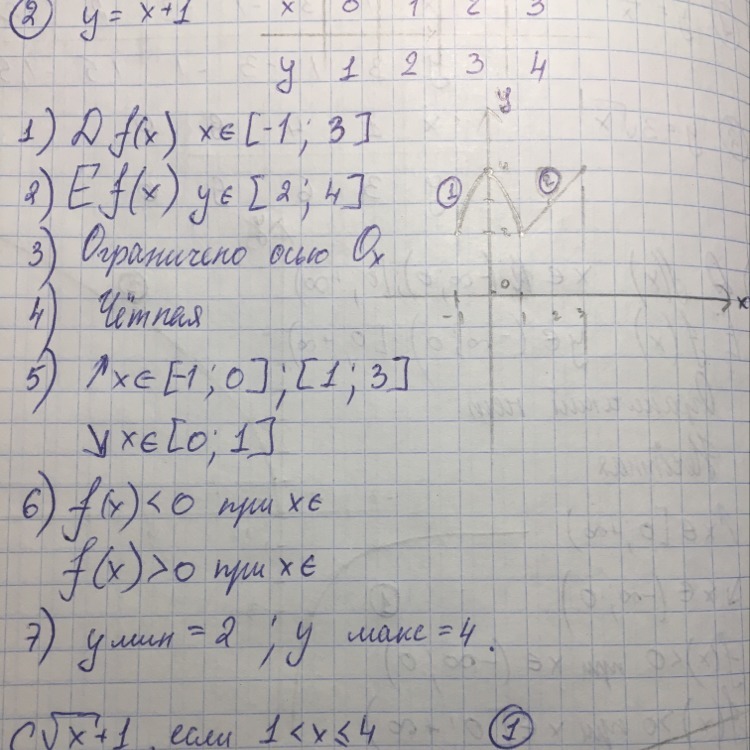 ② y = x+1
x 0 1 2 3
y 1 2 3 4
1) D f(x) x∈[-1; 3]
2) E f(x) y∈[2; 4]
3) Ограничено осью Ox
4) Чётная
5) ↗x∈[-1; 0]; [1; 3]
↘x∈[0; 1]
6) f(x)<0 при x∈
f(x)>0 при x∈
7) y мин = 2 ; y макс = 4.
√x+1, если 1<x≤4 ①
y
① ②
4
2
0
-1 1 2 3 x